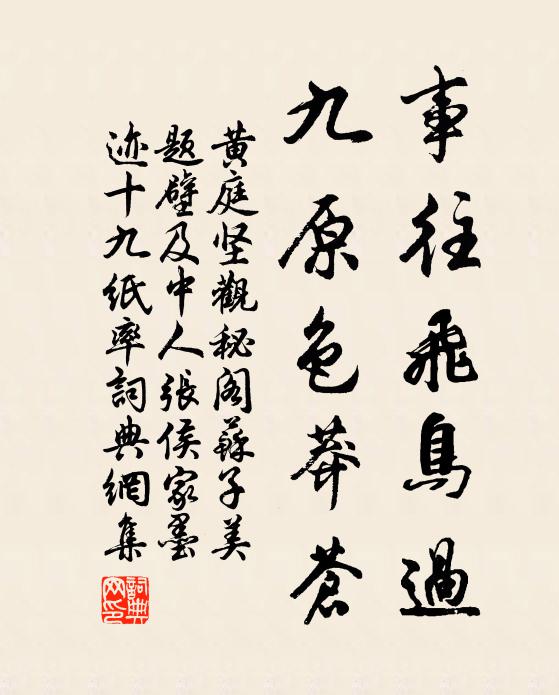 事往飛鳥過
九原色莽蒼
黄庭坚觀秘阁蘇子美
题壁及中人張侯家墨
迹十九紙率詞典網集
詞典网印